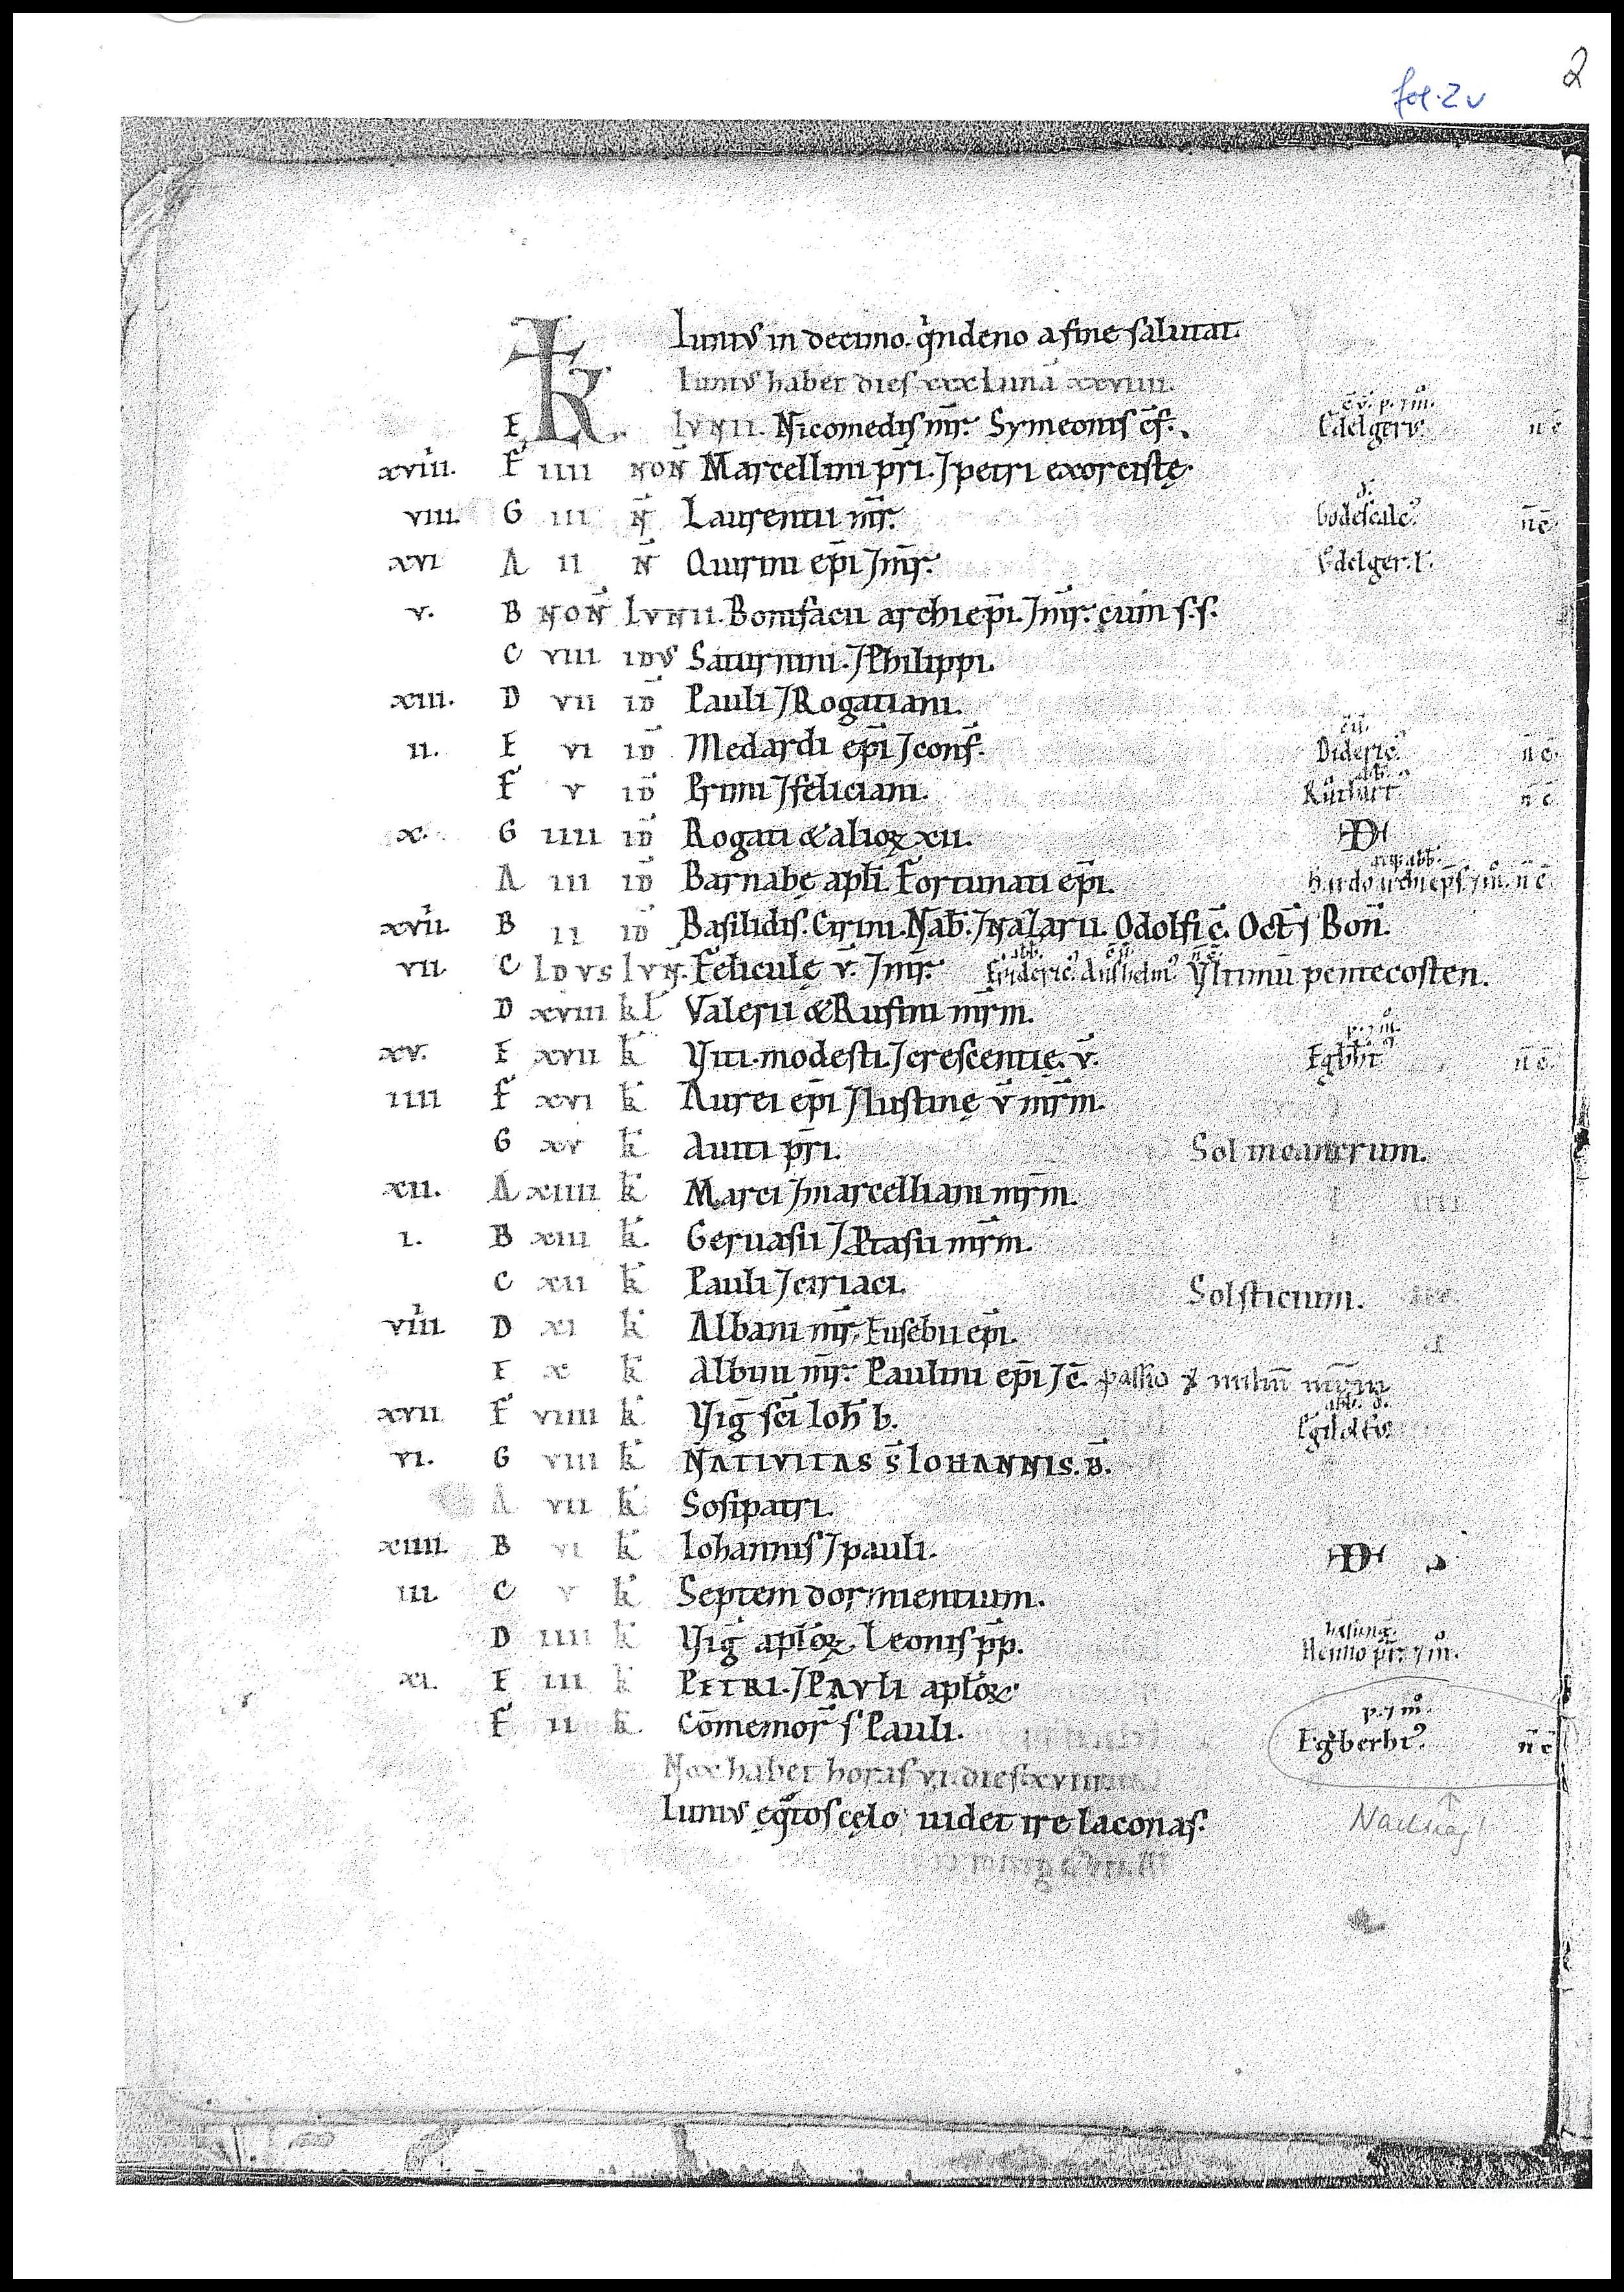 2
fol. 2v
Iunius in decimo. q̇ndeno a fine salutat.
Iunius habet dies xxx Luna xxviiii.
c̄v. p. ⁊ m̊.
E KL. IVNII. Nicomedis m̄r. Symeonis c̄f. Edelgerꝰ. n̄ c̄
xviii. F IIII NOÑ Marcellini p̄ri. ⁊ petri exorcistę.
d̄.
viii. G III Ñ Laurentii m̄r. Godescalcꝰ n̄ c̄.
xvi A II Ñ Quirini ep̄i ⁊ m̄r. Edelger. l.
v. B NOÑ IVNII. Bonifacii archiep̄i. ⁊ m̄r. cum s. s.
C VIII IDVS Saturnini. ⁊ Philippi.
xiii. D VII ID̄ Pauli ⁊ Rogatiani.
ii. E VI ID̄ Medardi ep̄i ⁊ conf̄. Dideric̉ n̄ c̄.
F V ID̄ Primi ⁊ feliciani. n̄ c̄
x. G IIII ID̄ Rogati & alioꝝ xii. D
abb̄.
A III ID̄ Barnabę apl̄i. Fortunati ep̄i. Bardo archiep̄s. ⁊ m̊. n̄ c̄.
xvii. B II ID̄ Basilidis. Cirini. Nab̄. ⁊ Nazarii. Odolfi c̄. Oct̄ s̄ Bon̄.
vii. C IDVS IVÑ. Felicule v̄. ⁊ m̄r. Frideric̉ Anshelmꝰ Vltimū pentecosten.
D XVIII kl̄ Valerii & Rufini m̄rm.
p. ⁊ m̊.
xv. E XVII k̄ Viti. modesti. ⁊ crescentię. v̄. Egb̄htꝰ n̄ c̄.
iiii F XVI k̄ Aurei ep̄i ⁊ Iustinę v̄ m̄rm.
G XV k̄ Auiti p̄ri. Sol in cancrum.
xii. A XIIII k̄ Marci ⁊ marcelliani m̄rm.
i. B XIII k̄ Geruasii ⁊ Ꝓtasii m̄rm.
C XII k̄ Pauli ⁊ ciriaci. Solsticium.
viiii. D XI k̄ Albani m̄r. Eusebii ep̄i.
E X k̄ Albini m̄r. Paulini ep̄i ⁊ c̄. passio x miliū m̄rm
abb̄. d̄.
xvii F VIIII k̄ Viḡ sc̄i Ioh̄ b. Egilolfꝰ.
vi. G VIII k̄ NATIVITAS S̄ IOHANNIS. B̄.
A VII k̄ Sosipatri.
xiiii. B VI k̄ Iohannis ⁊ pauli. D
iii. C V k̄ Septem dormientium.
D IIII k̄ Viḡ apl̄oꝝ. Leonis p̄p. Henno p̄r. ⁊ m̊.
xi. E III k̄ PETRI. ⁊ PAVLI apl̄oꝝ.
p. ⁊ m̊.
F II k̄ Cōmemor̄ s̄ Pauli. Egberhtꝰ. n̄ c̄
Nox habet horas vi. dies xviii
Nachtrag!
Iunius ęq̇tos cęlo uidet ire laconas.